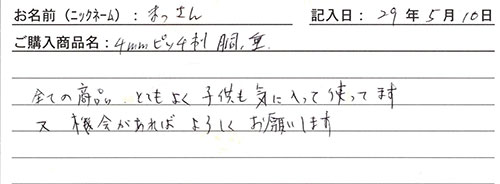 お名前（ニックネーム）：まっさん　記入日：29年5月10日
ご購入商品名：4mmピッチ刺 胴,垂
全ての商品、とてもよく子供も気に入って使ってます
又 機会があれば よろしく お願いします